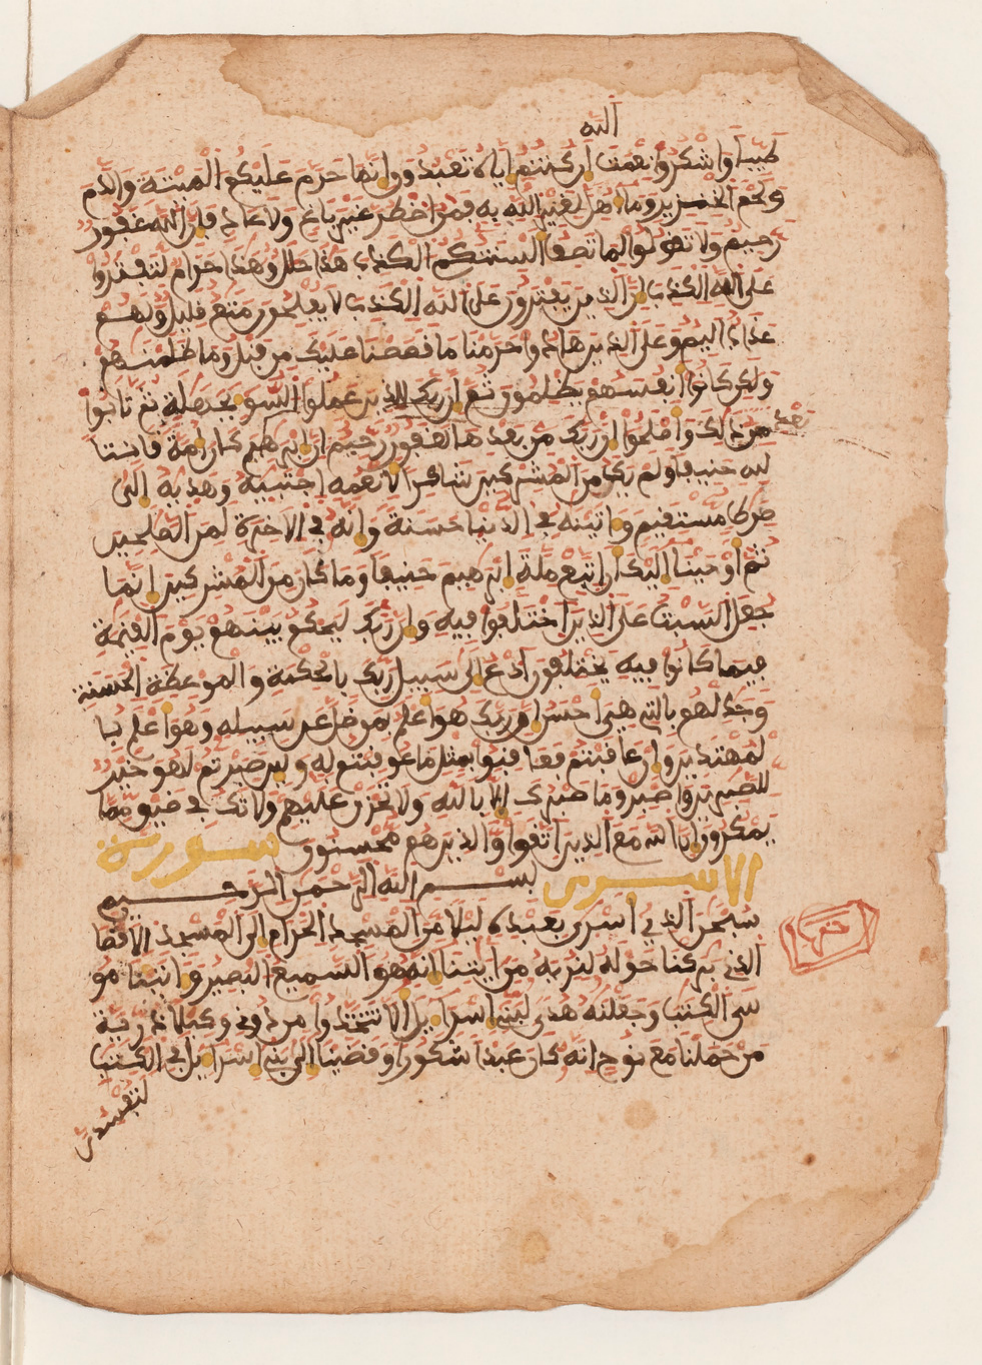 الله
طيبا واشكروا نعمت ان كنتم اياه تعبدون انما حرم عليكم الميتة والدم
ولحم الخنزير وما اهل لغير الله به فمن اضطر غير باغ ولا عاد فان الله غفور
رحيم ولا تقولوا لما تصف السنتكم الكذب هذا حلل وهذا حرام لتفتروا
على الله الكذب ان الذين يفترون على الله الكذب لا يفلحون متع قليل ولهم
عذاب اليم وعلى الذين هادوا حرمنا ما قصصنا عليك من قبل وما ظلمنهم
ولكن كانوا انفسهم يظلمون ثم ان ربك للذين عملوا السو بجهلة ثم تابوا
من بعد ذلك واصلحوا ان ربك من بعدها لغفور رحيم ان ابرهيم كان امة قانتا
لله حنيفا ولم يك من المشركين شاكرا لانعمه اجتبيه وهديه الى
صرط مستقيم واتينه في الدنيا حسنة وانه في الاخرة لمن الصلحين
ثم اوحينا اليك ان اتبع ملة ابرهيم حنيفا وما كان من المشركين انما
جعل السبت على الذين اختلفوا فيه وان ربك ليحكم بينهم يوم القيمة
فيما كانوا فيه يختلفون ادع الى سبيل ربك بالحكمة والموعظة الحسنة
وجدلهم بالتي هي احسن ان ربك هو اعلم بمن ضل عن سبيله وهو اعلم با
لمهتدين وان عاقبتم فعاقبوا بمثل ما عوقبتم به ولين صبرتم لهو خير
للصبرين واصبر وما صبرك الا بالله ولا تحزن عليهم ولا تك في ضيق مما
يمكرون ان الله مع الذين اتقوا والذين هم محسنون سورة
الاسرى بسم الله الرحمن الرحيم
سبحن الذي اسرى بعبده ليلا من المسجد الحرام الى المسجد الاقصا
الذي بركنا حوله لنريه من ايتنا انه هو السميع البصير واتينا مو
سى الكتب وجعلنه هدى لبني اسرايل الا تتخذوا من دوني وكيلا ذرية
من حملنا مع نوح انه كان عبدا شكورا وقضينا الى بني اسرايل في الكتب
لتفسدن